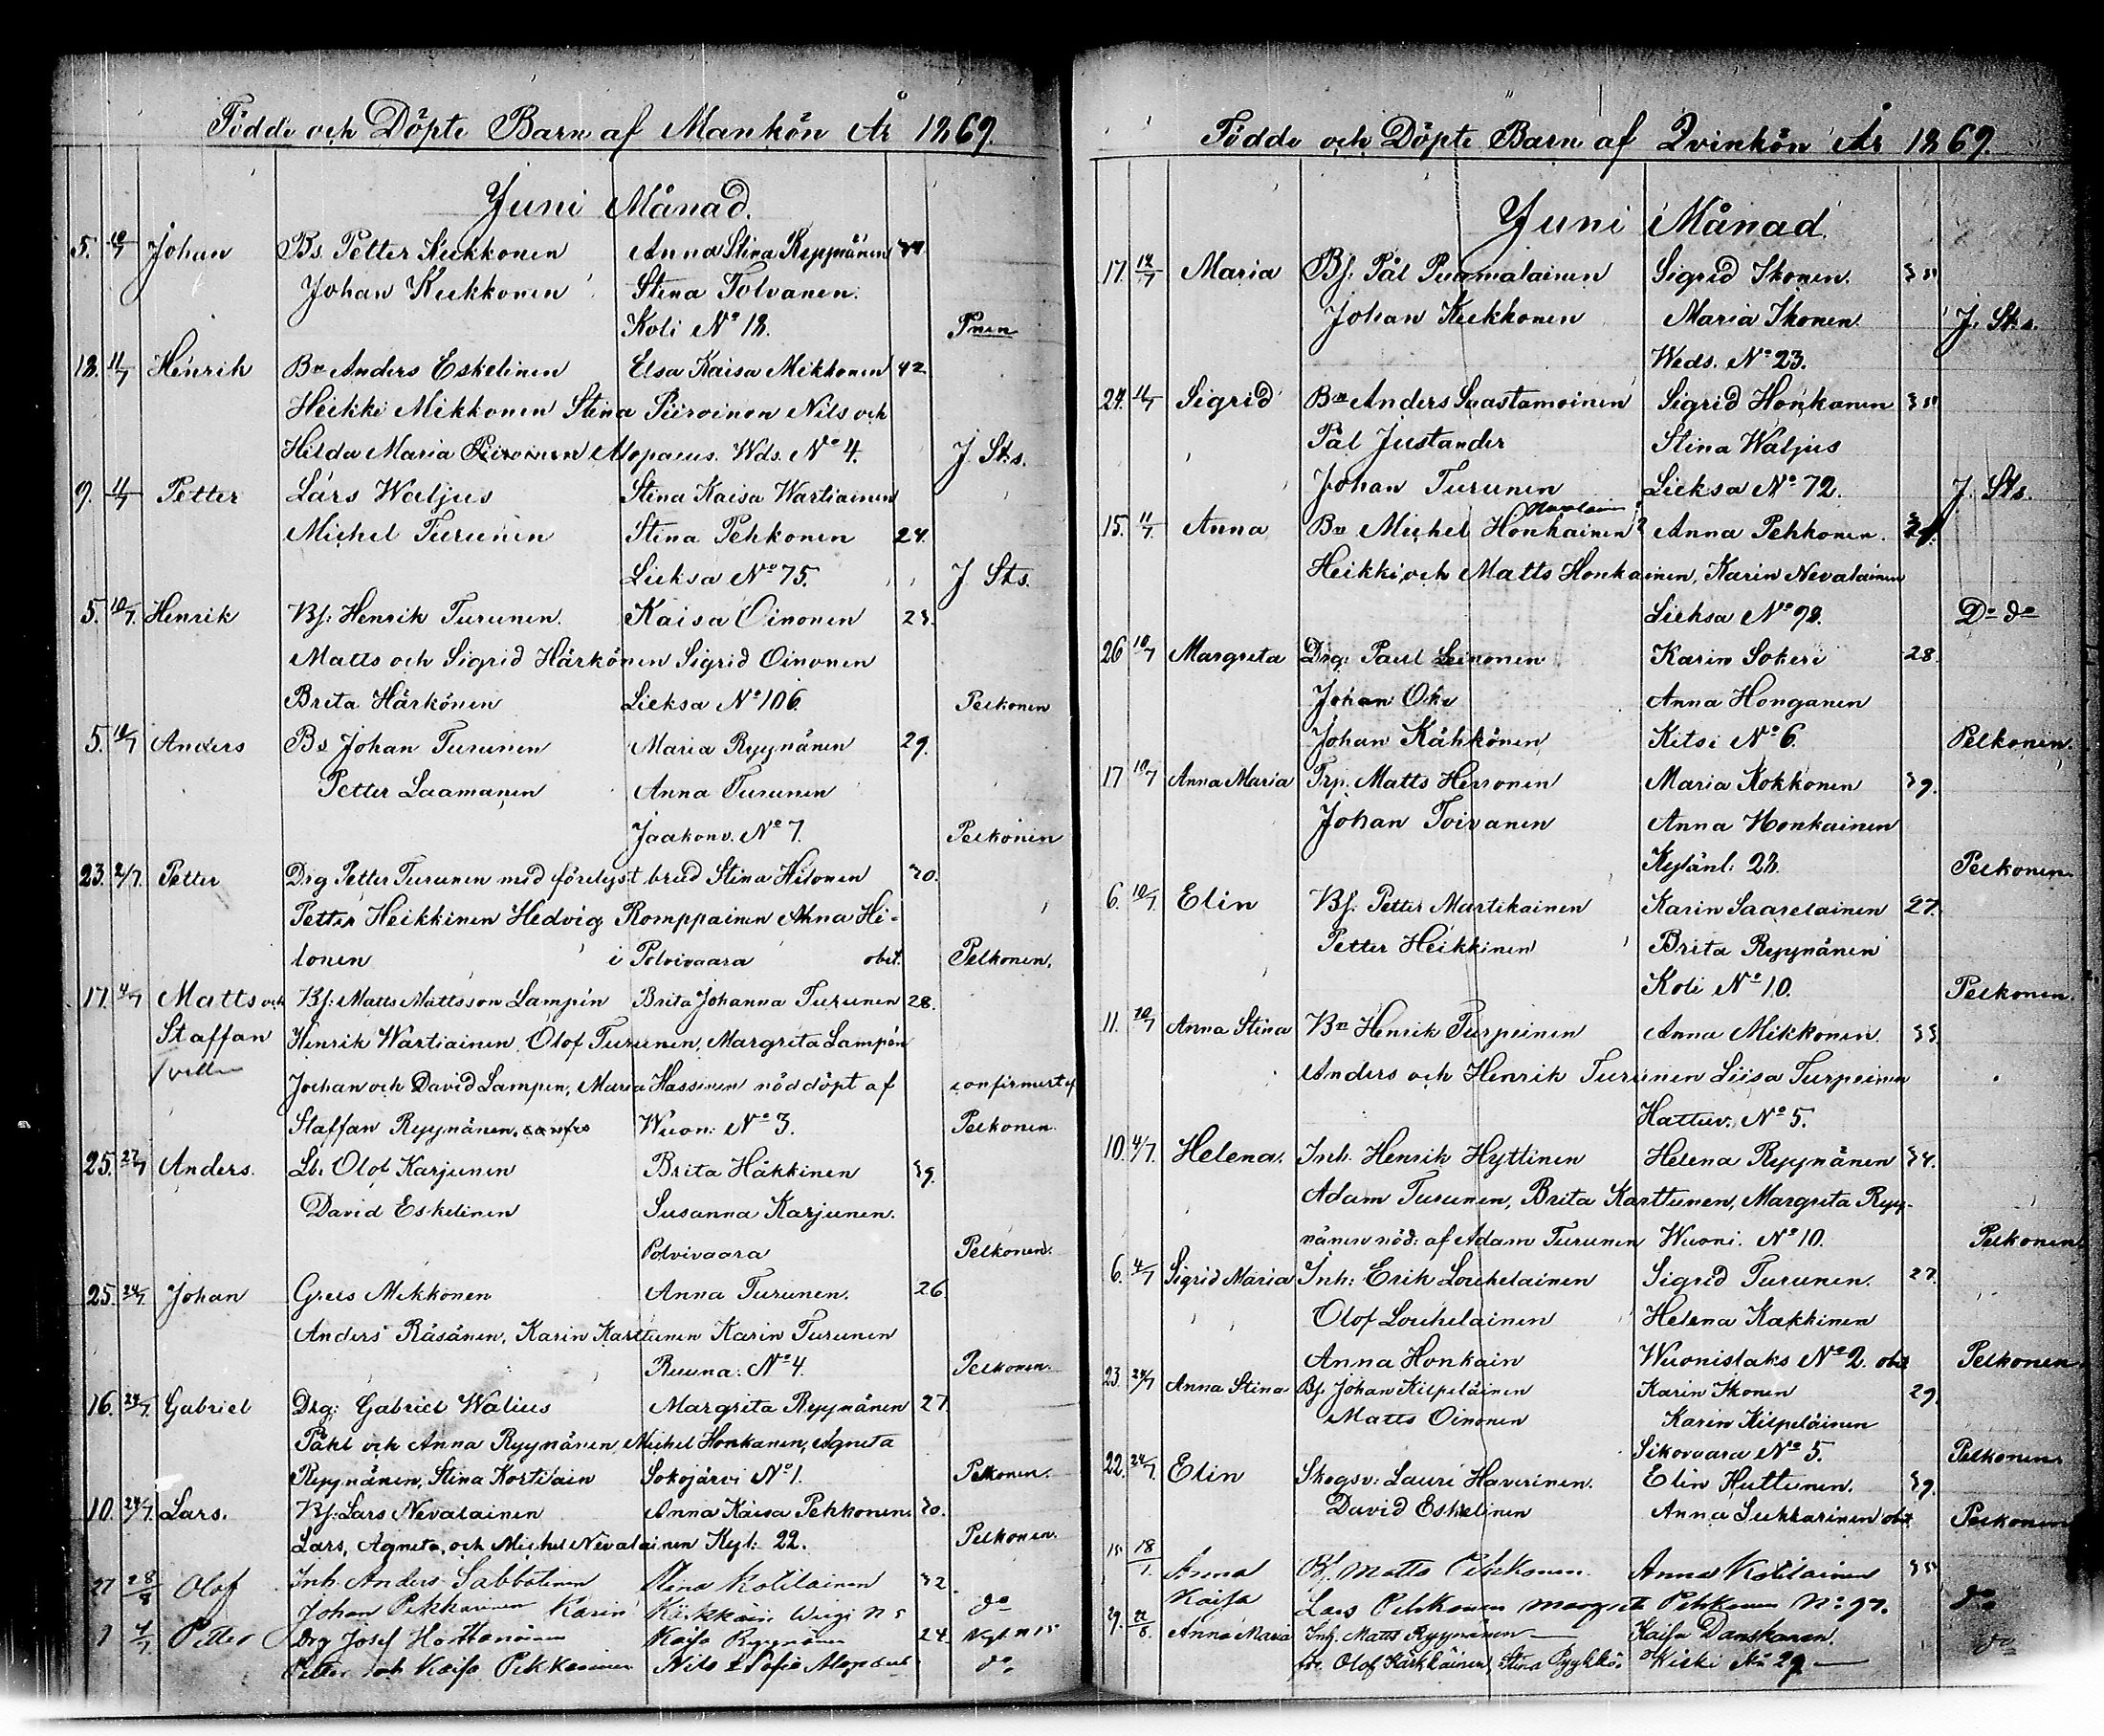 Födde och Döpte Barn af Mankön År 1869.
Juni Månad.
5. 10/7 Johan Bs. Petter Kukkonen Anna Stina Ryynänen
Johan Kukkonen Stina Tolvanen.
Koli No 18. Pnen
18. 11/7 Henrik Bn Anders Eskelinen Elsa Kaisa Mikkonen 42
Heikki Mikkonen Stina Piiroinen Nils och
Hilda Maria Piiroinen Alopaeus. Wds. No 4. J. Sts.
9. 11/7 Petter Lars Waljus Stina Kaisa Wartiainen
Michel Turunen Stina Pehkonen 24.
Lieksa No 75. J. Sts.
5. 10/7. Henrik Bf: Henrik Turunen. Kaisa Oinonen 23.
Matts och Sigrid Härkönen Sigrid Oinonen
Brita Härkönen Lieksa No 106. Pelkonen
5. 10/7 Anders Bs Johan Turunen Maria Ryynänen 29.
Petter Laamanen Anna Turunen
Jaakonv. No 7. Pelkonen
23. 2/7. Petter Drg Petter Turunen med förelyst brud Stina Hilonen 30.
Petter Heikkinen Hedvig Romppainen Anna Hi-
lonen i Polvivaara obit. Pelkonen.
17. 4/7 Matts och Bf: Matts Mattsson Lampén Brita Johanna Turunen 28.
Staffan Henrik Wartiainen, Olof Turunen, Margreta Lampén
Johan och David Lampen, Maria Hassinen nöddöpt af confirmert af
Staffan Ryynänen. Wuon: No 3. Pelkonen.
25. 27/7 Anders. Lb: Olof Karjunen Brita Häkkinen 39.
David Eskelinen Susanna Karjunen.
Polvivaara Pelkonen.
25. 24/7. Johan Grels Mikkonen Anna Turunen. 26.
Anders Räsänen, Karin Karttunen Karin Turunen
Ruuna: No 4. Pelkonen.
16. 24/7. Gabriel Drg: Gabriel Walius Margreta Ryynänen 27.
Påhl och Anna Ryynänen, Michel Honkanen, Agneta
Ryynänen, Stina Kortilain Sokojärvi No 1. Pelkonen.
10. 24/7. Lars. Bf: Lars Nevalainen Anna Kaisa Pehkonen. 30.
Lars, Agneta, och Michel Nevalainen Kyl: 22. Pelkonen.
27 28/8 Olof Inh. Anders Sabbatinen Stina Kotilainen 32.
Johan Pikkarainen Karin No 5 do
7 4/7 Petter Drg Josef Kaisa Ryynänen 24.
Petter och Kaisa Pikkarainen Nils & Sofie Alopaeus do
Födde och Döpte Barn af Qvinkön År 1869.
Juni Månad.
17. 12/7 Maria Bf: Pål Puumalainen Sigrid Ikonen.
Johan Kukkonen Maria Ikonen. J. Sts.
Weds. No 23.
24. 11/7 Sigrid Bn Anders Saastamoinen Sigrid Honkanen
Pål Justander Stina Waljus
Johan Turunen Lieksa No 72. J. Sts.
15. 11/7. Anna Bn Michel Honkainen? Anna Pehkonen.
Heikki och Matts Honkainen, Karin Nevalainen
Lieksa No 98. Do do
26 10/7 Margreta Drg: Paul Leinonen Karin Sokeri 28.
Johan Oke Anna Honganen
Johan Kähkönen Kitsi No 6. Pelkonen.
17 10/7 Anna Maria Trp. Matts Hersonen Maria Kokkonen 39.
Johan Toivanen Anna Honkainen
Kylänl: 23. Pelkonen.
6. 10/7. Elin Bf: Petter Martikainen Karin Saarelainen 27.
Petter Heikkinen Brita Ryynänen
Koli No 10. Pelkonen.
11. 10/7 Anna Stina Bn Henrik Turpeinen Anna Mikkonen. 33
Anders och Henrik Turunen Liisa Turpeinen
Hattuv. No 5.
10. 4/7. Helena. Inh. Henrik Hyttinen Helena Ryynänen 34.
Adam Turunen, Brita Karttunen, Margreta Ryy-
nänen nöd: af Adam Turunen Wuoni. No 10. Pelkonen.
6. 4/7 Sigrid Maria Inh: Erik Louhelainen Sigrid Turunen. 27.
Olof Louhelainen Helena Kakkinen
Anna Honkain Wuonislaks No 2. obit Pelkonen.
23. 24/7 Anna Stina Bf. Johan Kilpeläinen Karin Ikonen 29.
Matts Oinonen Karin Kilpeläinen
Sikovaara No 5. Pelkonen.
22. 24/7. Elin Skogsv: Lauri Haverinen. Elin Huttunen. 39.
David Eskelinen Anna Sukkarinen obit Pelkonen
15 18/7. Anna Bf. Matts Pehkonen. Anna Kotilainen 35
Kaisa Lars Pehkonen Margreta Pehkonen No 97. do
29. 22/8. Anna Maria Inh. Matts Ryynänen Kaisa Danskanen.
Olof Kärkkäinen, Stina Pyykkö. Wieki No 29 do